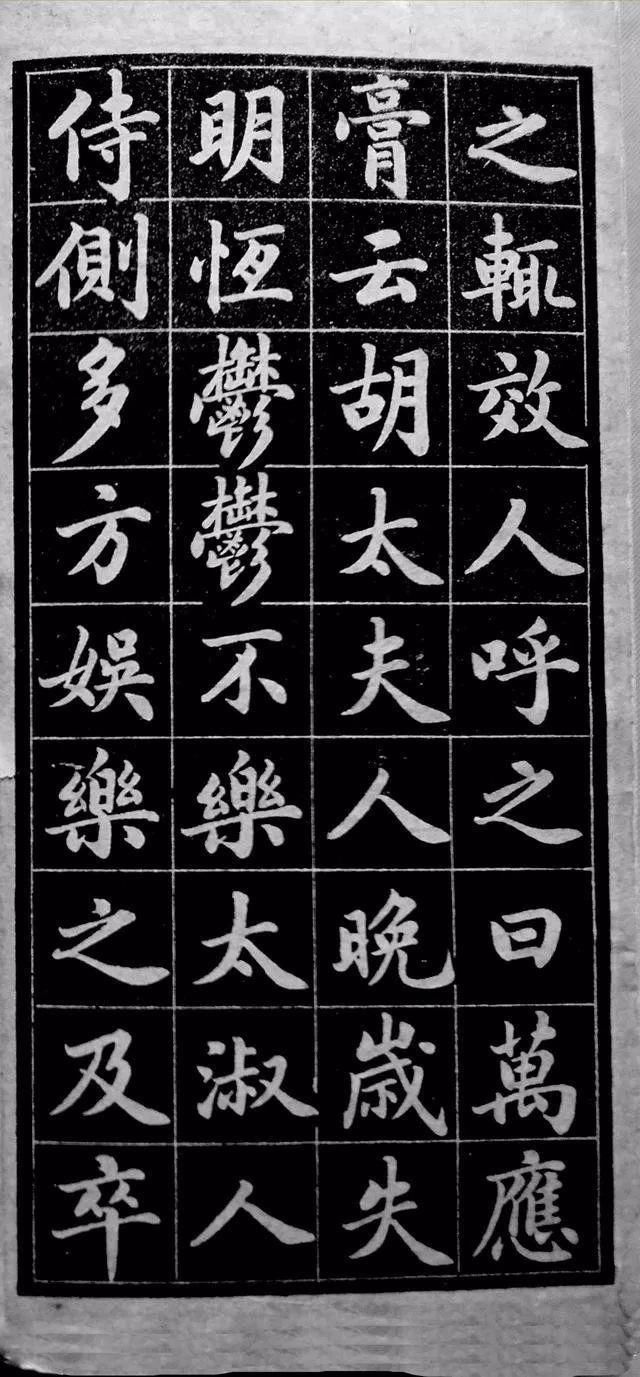 之輒效人呼之曰萬應
膏云胡太夫人晚歲失
明恆鬱鬱不樂太淑人
侍側多方娛樂之及卒